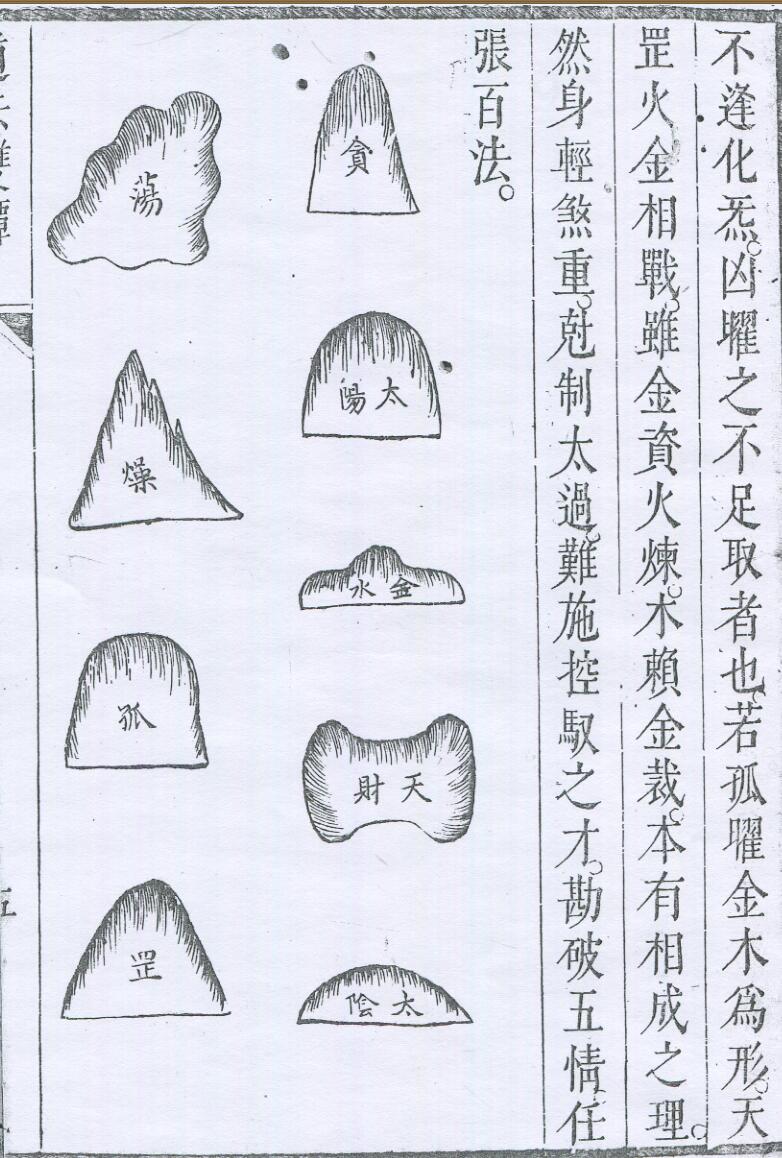 不逢化炁。凶曜之不足取者也。若孤曜金木爲形。天
罡火金相戰。雖金資火煉。木賴金裁。本有相成之理。
然身輕煞重。尅制太過。難施控馭之才。勘破五情任
張百法。
貪
太陽
金水
天財
太陰
蕩
燥
孤
罡